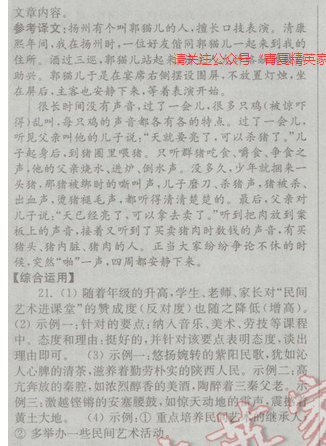 文章内容。
参考译文:扬州有个叫郭猫儿的人,擅长口技表演。清康
熙年间,我在扬州时,一位好友偕同郭猫儿一起来到我的
住所。酒过三巡,郭猫儿站起来
请关注公众号 青夏精英家
助兴。郭猫儿于是在宴席右侧摆设围屏,不放置灯烛,坐
在屏后,主客也安静下来,等着表演开始。
很长时间没有声音,过了一会儿,很多只鸡(被惊吓
得)乱叫,每只鸡的声音都各有各的特点。过了一会儿,
听见父亲叫他的儿子说:“天就要亮了,可以杀猪了。”儿
子起身后,到猪圈里喂猪。只听群猪吃食、嚼食、争食之
声,他的父亲烧水、进炉、倒水声。没多久,少年就捆来一
头猪,那猪被绑时的嘶叫声,儿子磨刀、杀猪声,猪被杀、
出血声,烫猪褪毛声,都听得清清楚楚的。最后,父亲对
儿子说:“天已经亮了,可以拿去卖了。”听到把肉放到案
板上的声音,接着又听到了买卖猪肉时数钱的声音,有买
猪头、猪内脏、猪肉的人。正当大家纷纷争论不休的时
候,突然“啪”一声,四周都安静下来。
【综合运用】
21. (1) 随着年级的升高,学生、老师、家长对“民间
艺术进课堂”的赞成度(反对度)也随之降低(增高)。
(2) 示例一:针对的要点:纳入音乐、美术、劳技等课程
中。态度和理由:挺好的,并针对该要点表明态度,谈出
理由即可。 (3) 示例一:悠扬婉转的紫阳民歌,犹如沁
人心脾的清茶,滋养着勤劳朴实的陕西人民。示例二:高
亢奔放的秦腔,如浓烈醇香的美酒,陶醉着三秦父老。示
例三:激越铿锵的安塞腰鼓,如惊天动地的雷声,震撼着
黄土大地。 (4) 示例:① 重点培养民间艺术的继承人;
② 多举办一些民间艺术活动。